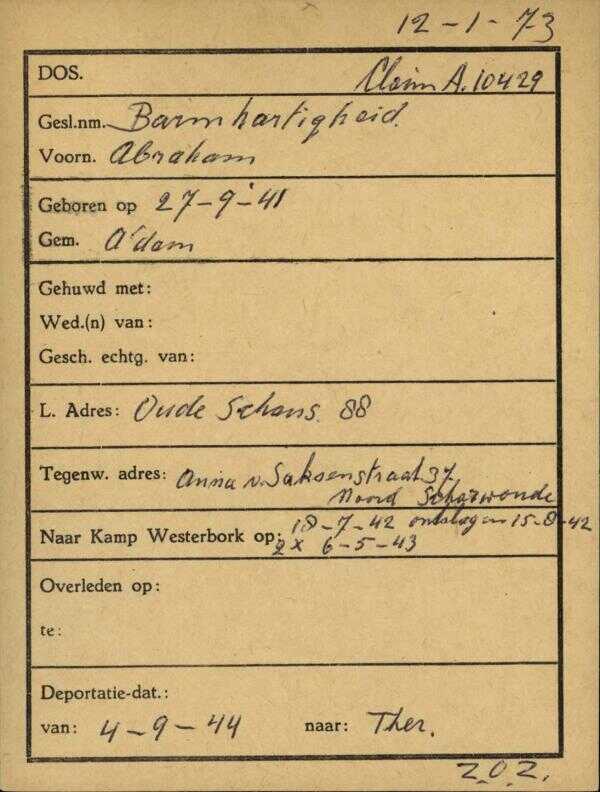 12-1-73
DOS. Claim A. 10429
Gesl.nm. Barmhartigheid.
Voorn. Abraham
Geboren op 27-9-41
Gem. A'dam
Gehuwd met:
Wed.(n) van:
Gesch. echtg. van:
L. Adres: Oude Schans. 88
Tegenw. adres: Anna v. Saksenstraat 37
Noord Scharwoude
18-7-42 ontslagen 15-8-42
Naar Kamp Westerbork op: 2x 6-5-43
Overleden op:
te:
Deportatie-dat.:
van: 4-9-44 naar: Ther.
Z.O.Z.